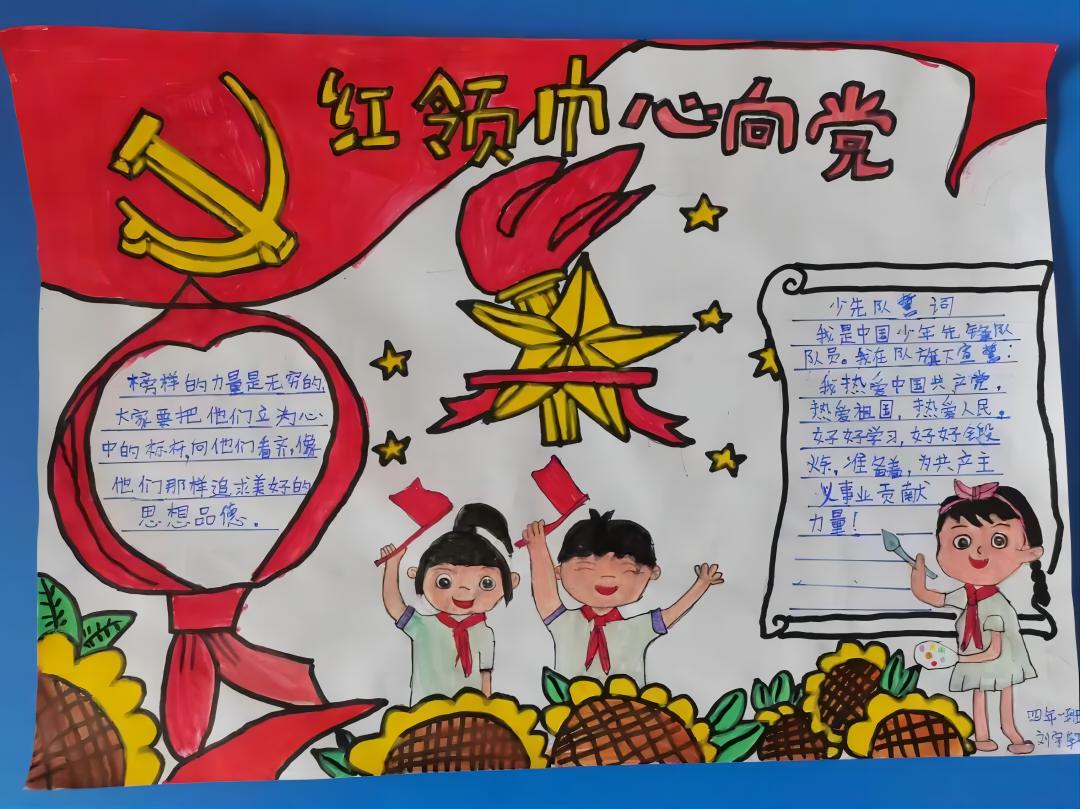 红领巾心向党
榜样的力量是无穷的,
大家要把他们立为心
中的标杆,向他们看齐,像
他们那样追求美好的
思想品德。
少先队誓词
我是中国少年先锋队
队员。我在队旗下宣誓:
我热爱中国共产党,
热爱祖国,热爱人民。
好好学习,好好锻
炼,准备着,为共产主
义事业贡献
力量!
四年一班
刘宇轩